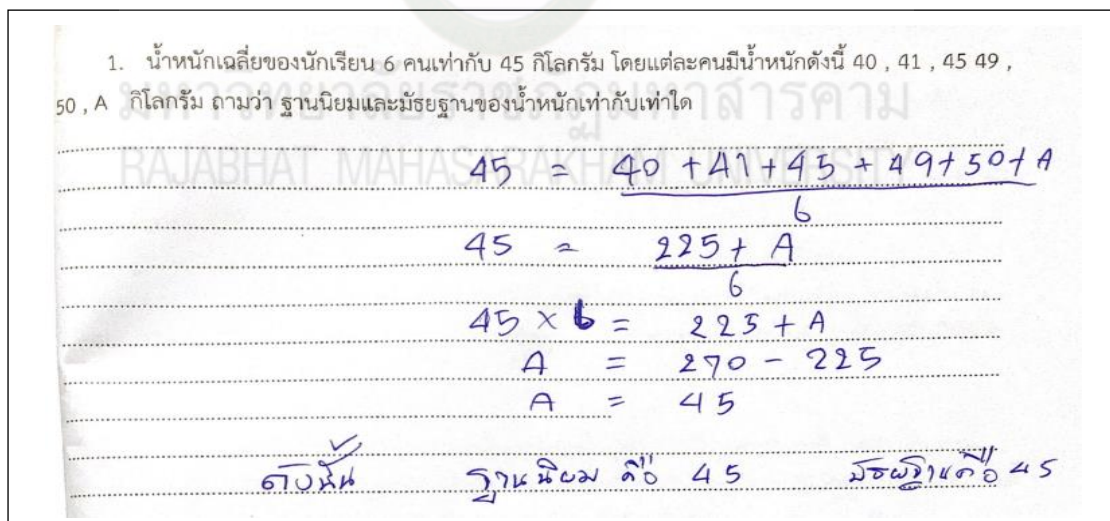 1. น้ำหนักเฉลี่ยของนักเรียน 6 คนเท่ากับ 45 กิโลกรัม โดยแต่ละคนมีน้ำหนักดังนี้ 40 , 41 , 45 49 ,
50 , A กิโลกรัม ถามว่า ฐานนิยมและมัธยฐานของน้ำหนักเท่ากับเท่าใด
มหาวิทยาลัยราชภัฏมหาสารคาม
RAJABHAT MAHASARAKHAM UNIVERSITY
45 = 40 + 41 + 45 + 49 + 50 + A
6
45 = 225 + A
6
45 × 6 = 225 + A
A = 270 - 225
A = 45
ดังนั้น ฐานนิยม คือ 45 มัธยฐานคือ 45